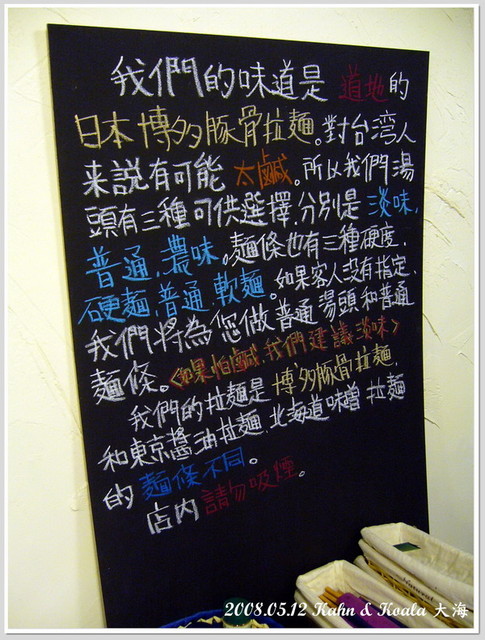 我們的味道是 道地的
日本博多豚骨拉麵。對台湾人
来説有可能 太鹹。所以我們湯
頭有三種可供選擇,分別是 淡味,
普通,濃味。麵條也有三種硬度,
硬麵,普通,軟麵。如果客人没有指定,
我們將為您做普通湯頭和普通
麵條。<如果怕鹹,我們建議淡味>
我們的拉麵是 博多豚骨拉麵,
和東京醬油拉麵,北海道味噌拉麵
的麵條不同。
店内請勿吸煙。
2008.05.12 Kahn & Koala 大海